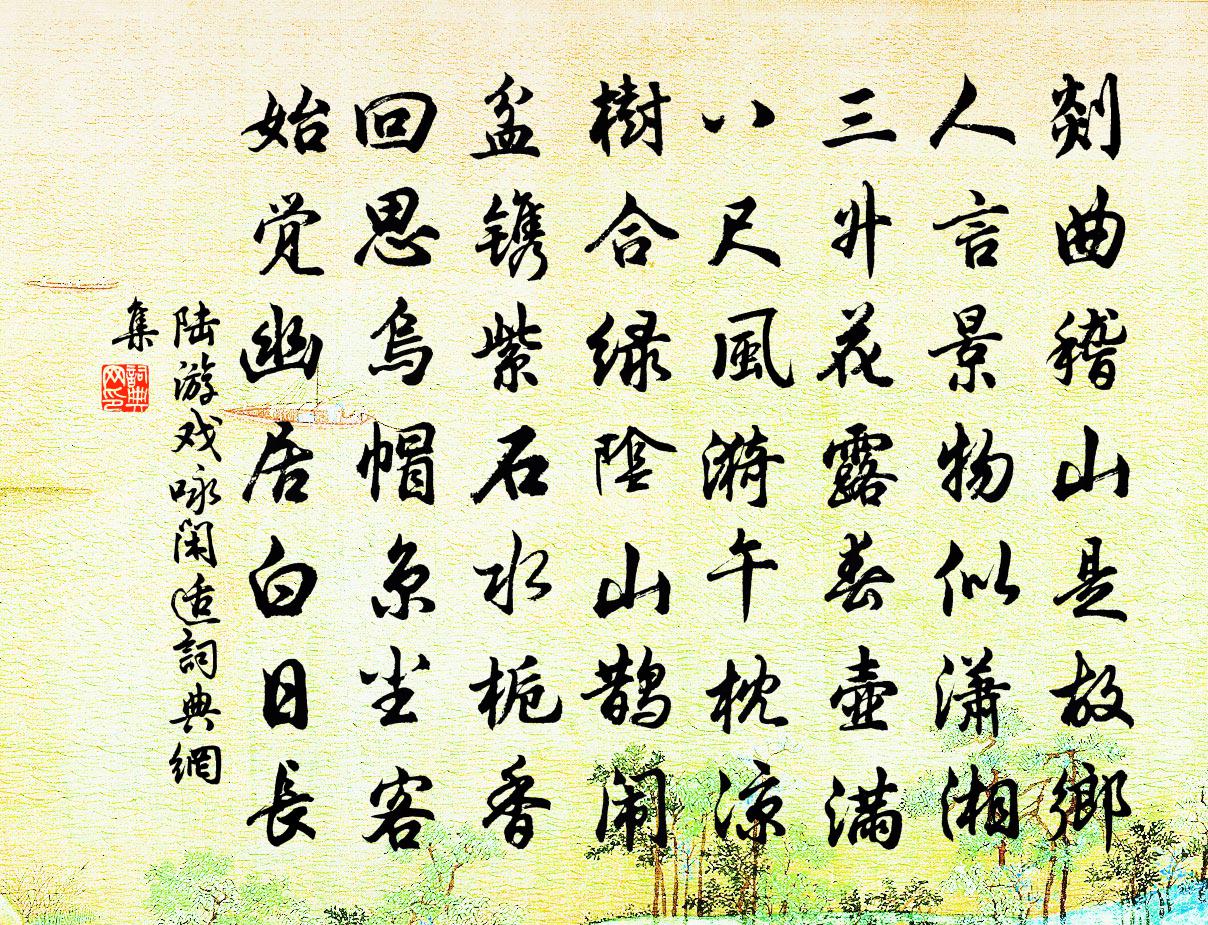 剡曲稽山是故鄉
人言景物似潇湘
三升花露春壺满
八尺風漪午枕涼
樹合绿陰山鹊闹
盆镌紫石水栀香
回思烏帽京尘客
始觉幽居白日長
陆游戏咏闲适詞典網
集
詞典网印